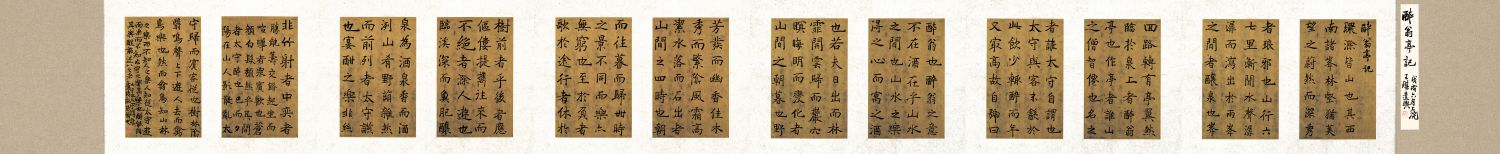 醉翁亭記
醉翁亭記
環滁皆山也其西
南諸峯林壑尤美
望之蔚然而深秀
者琅邪也山行六
七里漸聞水聲潺
潺而瀉出於兩峯
之間者釀泉也峯
回路轉有亭翼然
臨於泉上者醉翁
亭也作亭者誰山
之僧智僊也名之
者誰太守自謂也
太守與客來飲於
此飲少輒醉而年
又最高故自號曰
醉翁也醉翁之意
不在酒在乎山水
之間也山水之樂
得之心而寓之酒
也若夫日出而林
霏開雲歸而巖穴
暝晦明而變化者
山間之朝暮也野
芳發而幽香佳木
秀而繁陰風霜高
潔水落而石出者
山間之四時也朝
而往暮而歸四時
之景不同而樂亦
無窮也至於負者
歌於途行者休於
樹前者乎後者應
傴僂提攜往來而
不絕者滁人遊也
臨溪深而魚肥釀
泉為酒泉香而酒
洌山肴野蔌雜然
而前列者太守讌
也宴酣之樂非絲
非竹射者中奕者
勝觥籌交錯起坐而
諠譁者衆賓歡也蒼
顏白髮頹然乎其間
者太守醉也已而夕
陽在山人影散亂太
守歸而賓客從也樹林陰
翳鳴聲上下遊人去而禽
鳥樂也然而禽鳥知山林
之樂而不知人之樂人知從太守遊